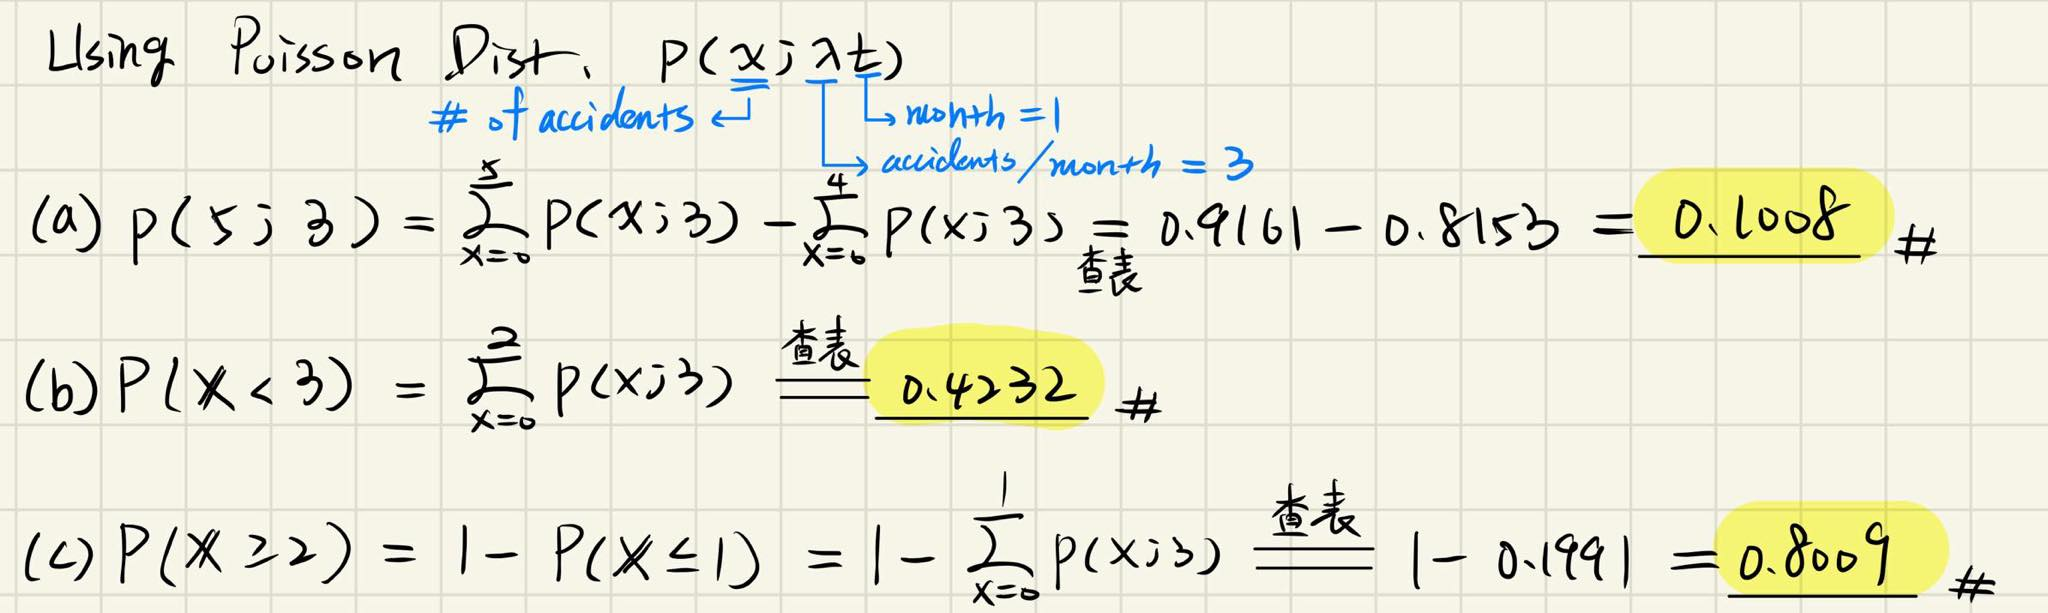 Using Poisson Dist. P(x; λt)
# of accidents ← month = 1
→ accidents/month = 3
(a) p(5; 3) = \sum_{x=0}^{5} P(x; 3) - \sum_{x=0}^{4} P(x; 3) = 查表 0.9161 - 0.8153 = 0.1008 #
(b) P(X < 3) = \sum_{x=0}^{2} P(x; 3) = 查表 0.4232 #
(c) P(X ≥ 2) = 1 - P(X ≤ 1) = 1 - \sum_{x=0}^{1} P(x; 3) = 查表 1 - 0.1991 = 0.8009 #